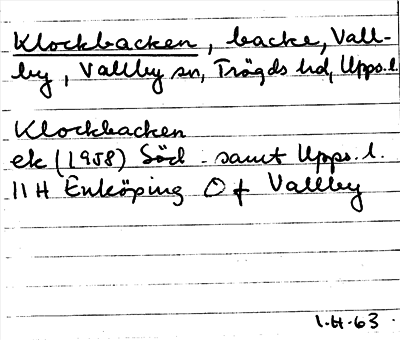 Klockbacken, backe, Vall-
by, Vallby sn, Trögds hd, Upps.l.
Klockbacken
ek (1958) Söd - samt Upps. l.
11 H Enköping O f Vallby
1.H.63.